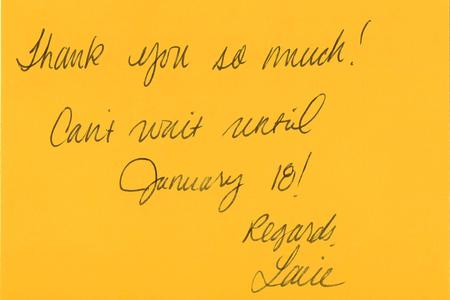 Thank you so much!
Can't wait until
January 18!
Regards,
Lorie